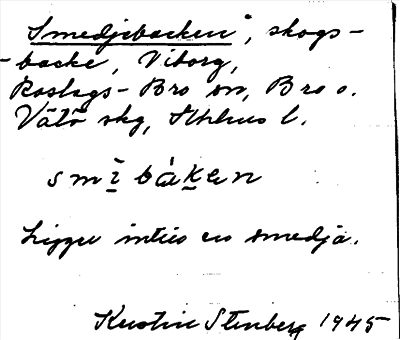 Smedjebacken, skogs-
-backe, Viborg,
Roslags-Bro sn, Bro o.
Vätö skg, Sthlms l.
smi̲bàk̲en
Ligger intill en smedja.
Kerstin Stenberg 1945